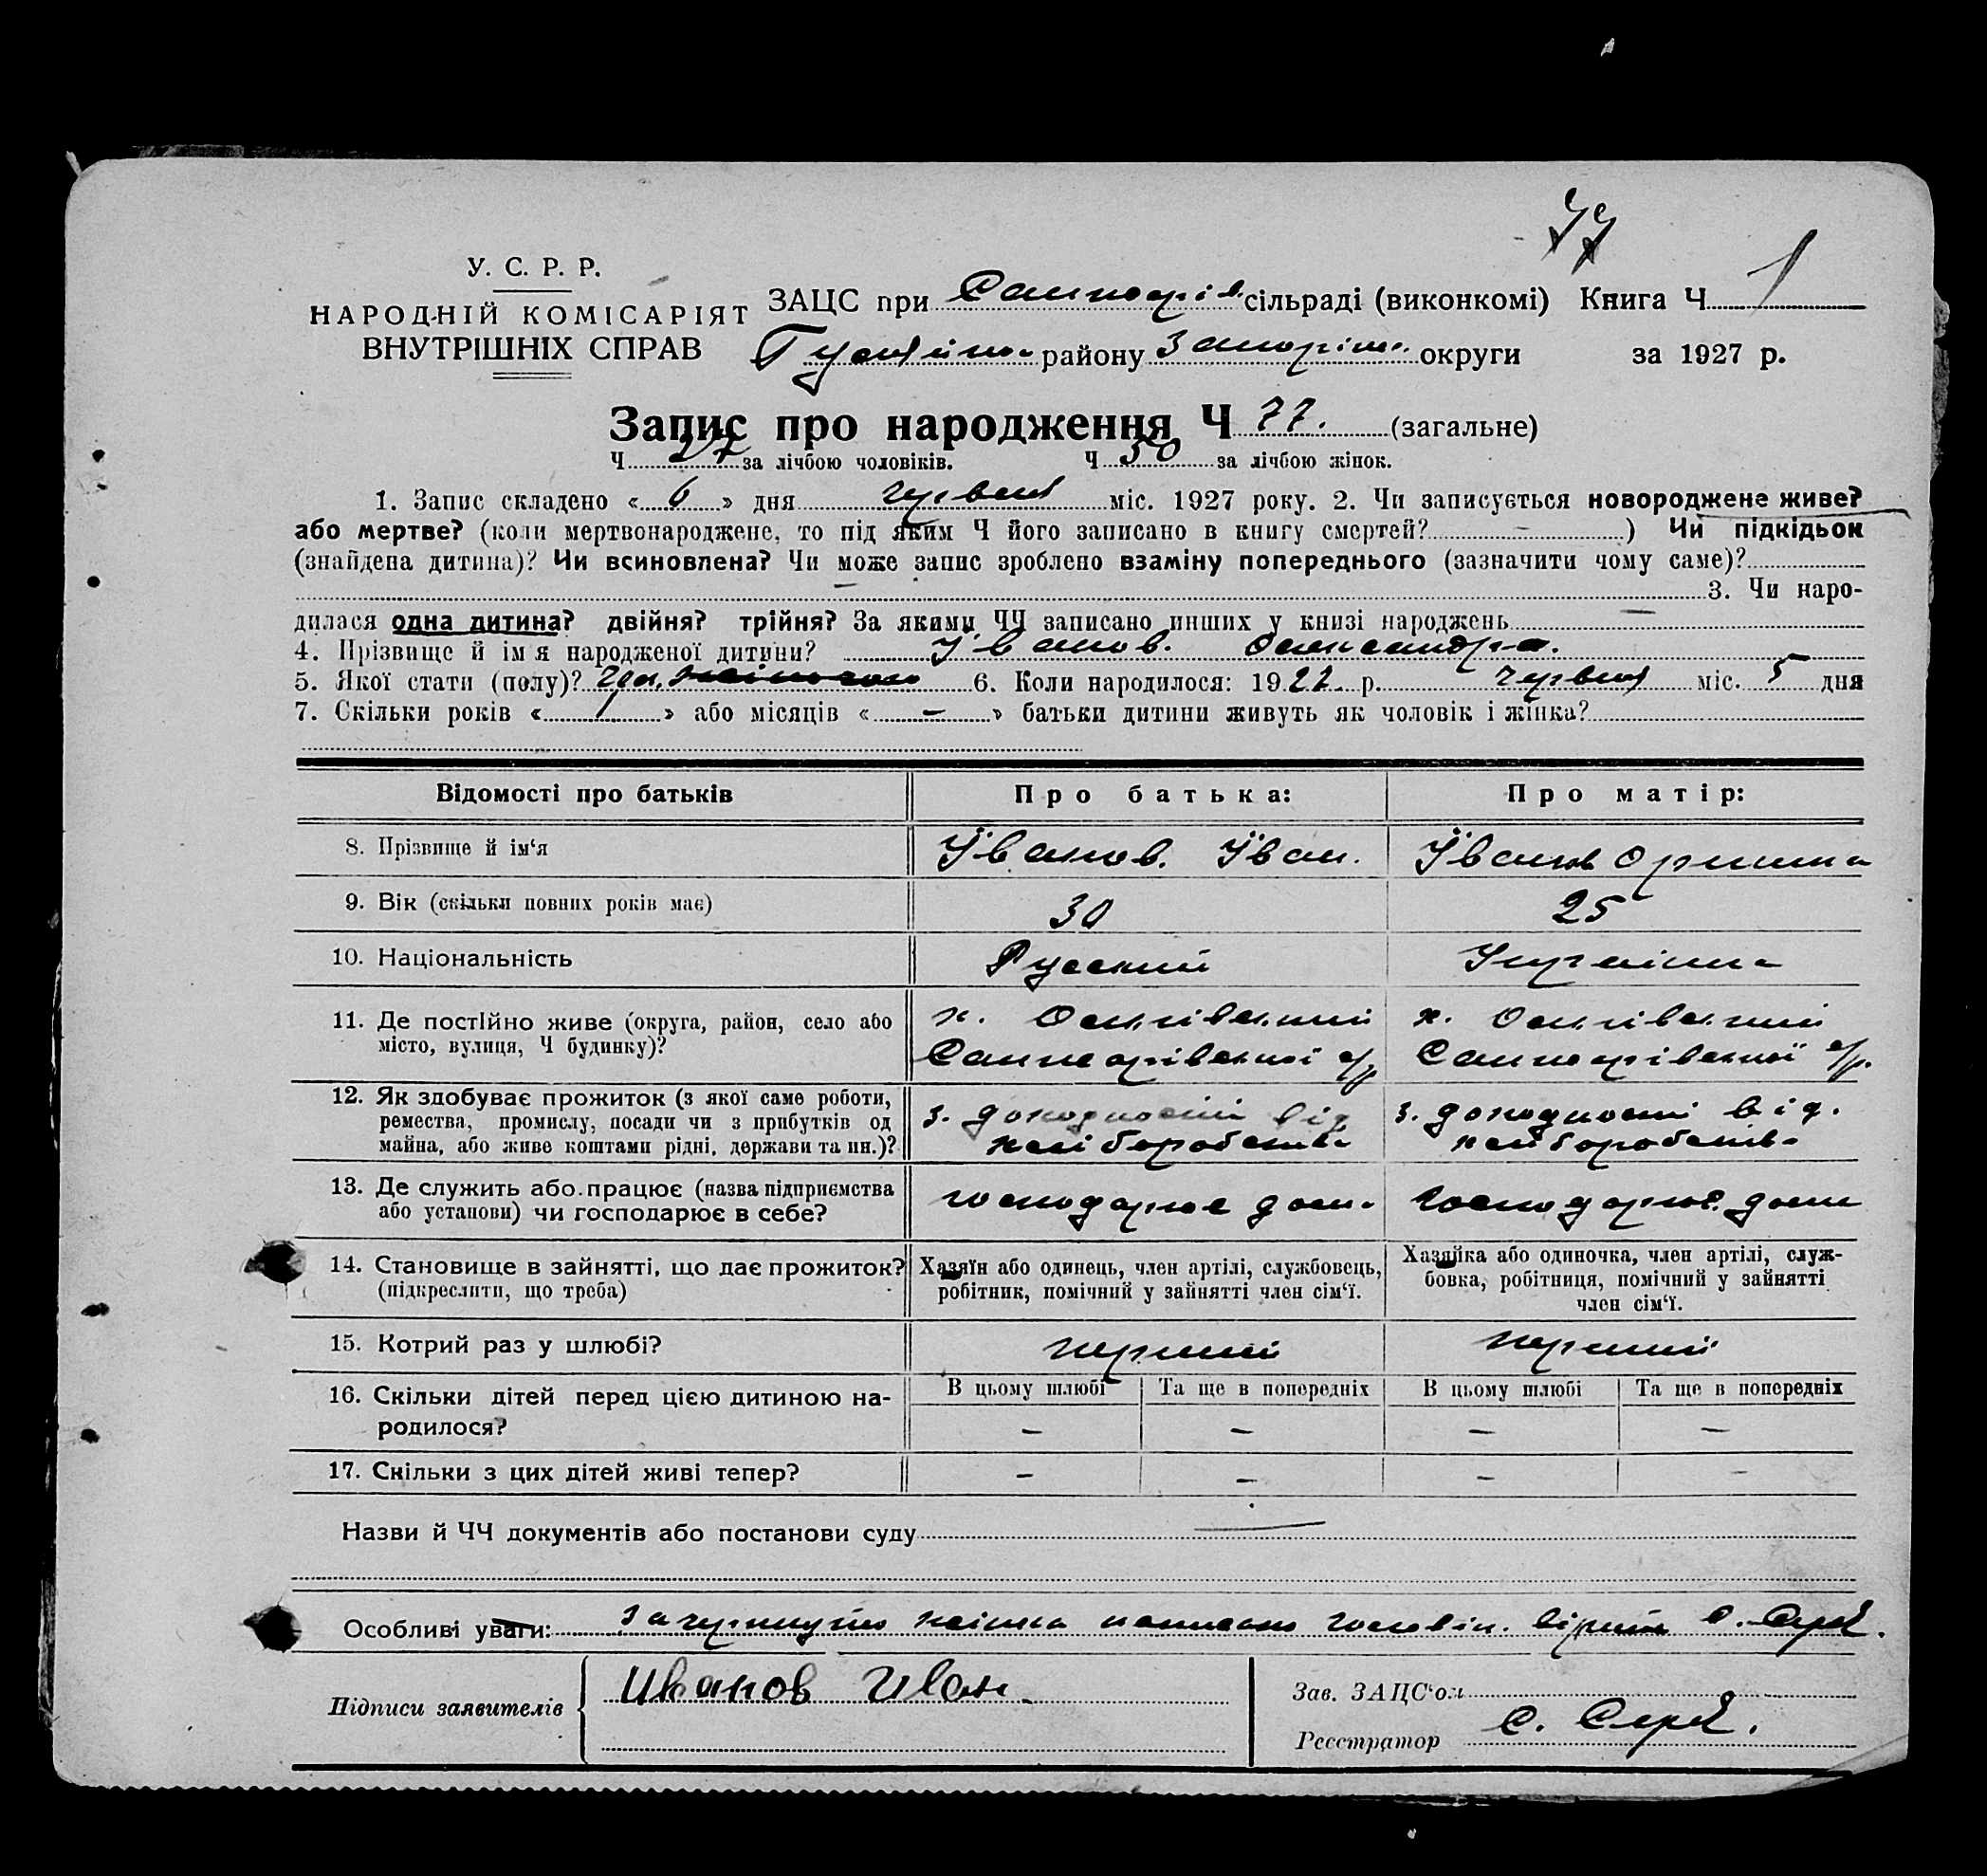 77
У. С. Р. Р.
НАРОДНІЙ КОМІСАРІЯТ
ВНУТРІШНІХ СПРАВ
ЗАЦС при сільраді (виконкомі) Книга Ч 1
району Запоріж. округи за 1927 р.
Запис про народження Ч 77. (загальне)
Ч 27 за лічбою чоловіків. Ч 50 за лічбою жінок.
1. Запис складено « 6 » дня червня міс. 1927 року. 2. Чи записується новороджене живе?
або мертве? (коли мертвонароджене, то під яким Ч його записано в книгу смертей? – ) Чи підкідьок
(знайдена дитина)? Чи всиновлена? Чи може запис зроблено взаміну попереднього (зазначити чому саме)?
– 3. Чи наро-
дилася одна дитина? двійня? трійня? За якими ЧЧ записано инших у книзі народжень –
4. Прізвище й імя народженої дитини? Іванов. Олександра.
5. Якої стати (полу)? Чол. 6. Коли народилося: 19 р. червня міс. 5 дня
7. Скільки років « 1 » або місяців « – » батьки дитини живуть як чоловік і жінка?
Відомості про батьків Про батька: Про матір:
8. Прізвище й ім'я Їванов. Їван. Їванов Орина
9. Вік (скільки повних років має) 30 25
10. Національність Русский Українка
11. Де постійно живе (округа, район, село або місто, вулиця, Ч будинку)?
х. х.
с/р с/р.
12. Як здобуває прожиток (з якої саме роботи,
ремества, промислу, посади чи з прибутків од
майна, або живе коштами рідні, держави та ин.)?
з. доходности від з. доходности від.
хліборобств. хліборобств.
13. Де служить або працює (назва підприємства
або установи) чи господарює в себе?
господарює дома господарює дома
14. Становище в зайнятті, що дає прожиток?
(підкреслити, що треба)
Хазяїн або одинець, член артілі, службовець,
робітник, помічний у зайнятті член сім'ї.
Хазяйка або одиночка, член артілі, служ-
бовка, робітниця, помічний у зайнятті
член сім'ї.
15. Котрий раз у шлюбі? перший перший
16. Скільки дітей перед цією дитиною на-
родилося?
В цьому шлюбі Та ще в попередніх В цьому шлюбі Та ще в попередніх
– – – –
17. Скільки з цих дітей живі тепер? – – – –
Назви й ЧЧ документів або постанови суду —
Особливі уваги: зачеркнуто жіноч написано чоловіч. вірити С. Серб.
Підписи заявителів Иванов Иван.
Зав. ЗАЦС'ом
Реєстратор С. Серб.